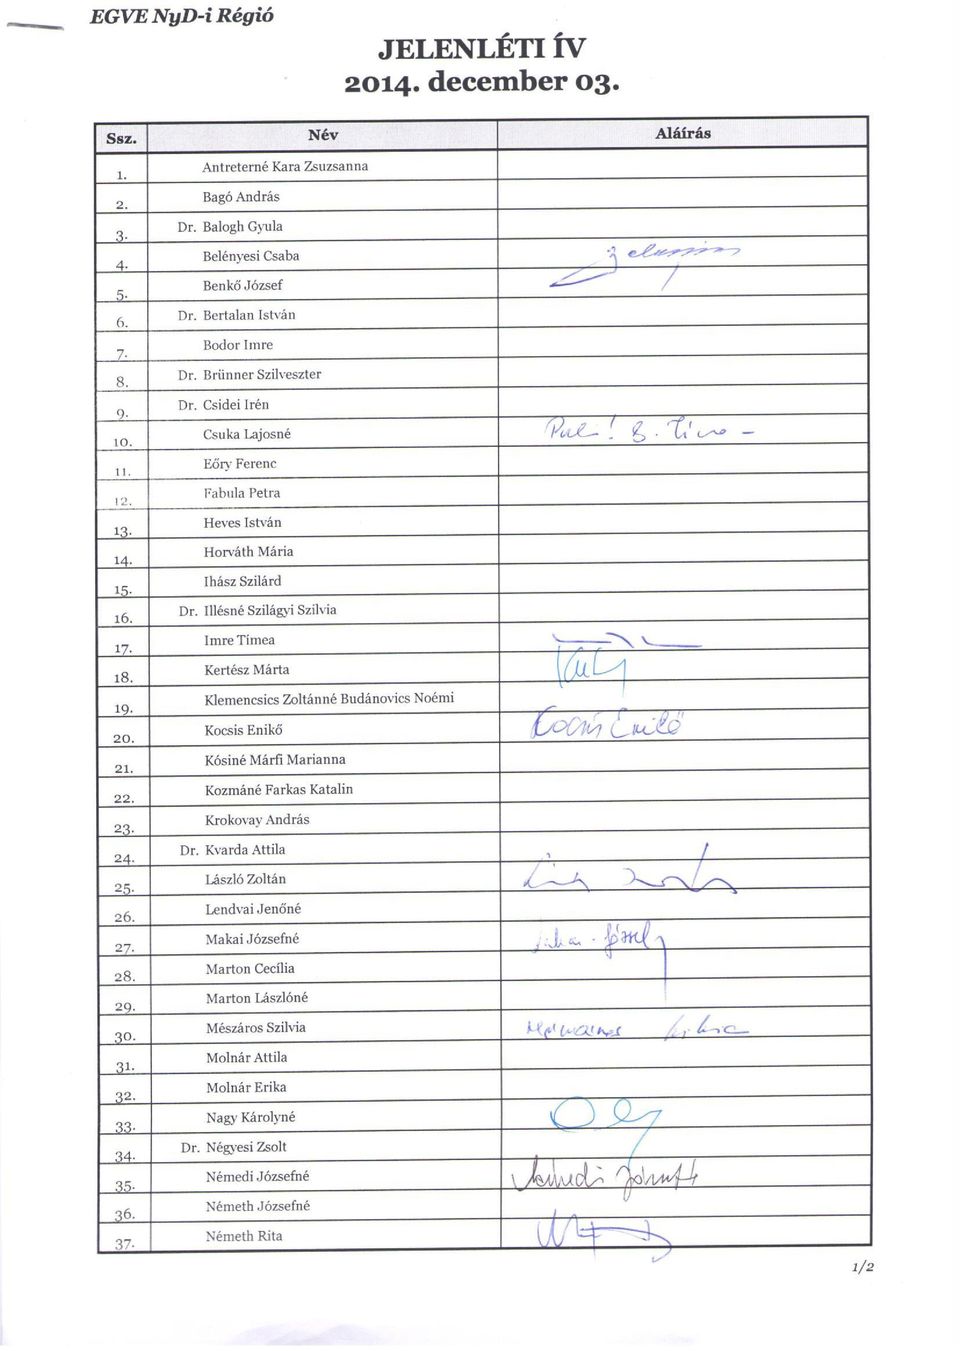 EGVE NyD-i Régió
JELENLÉTI ÍV
2014. december 03.
Ssz. Név Aláírás
1. Antreterné Kara Zsuzsanna
2. Bagó András
3. Dr. Balogh Gyula
4. Belényesi Csaba
5. Benkő József
6. Dr. Bertalan István
7. Bodor Imre
8. Dr. Brünner Szilveszter
9. Dr. Csidei Irén
10. Csuka Lajosné
11. Eőry Ferenc
12. Fabula Petra
13. Heves István
14. Horváth Mária
15. Ihász Szilárd
16. Dr. Illésné Szilágyi Szilvia
17. Imre Tímea
18. Kertész Márta
19. Klemencsics Zoltánné Budánovics Noémi
20. Kocsis Enikő Kocsis Enikő
21. Kósiné Márfi Marianna
22. Kozmáné Farkas Katalin
23. Krokovay András
24. Dr. Kvarda Attila
25. László Zoltán
26. Lendvai Jenőné
27. Makai Józsefné
28. Marton Cecília
29. Marton Lászlóné
30. Mészáros Szilvia
31. Molnár Attila
32. Molnár Erika
33. Nagy Károlyné
34. Dr. Négyesi Zsolt
35. Némedi Józsefné
36. Németh Józsefné
37. Németh Rita
1/2